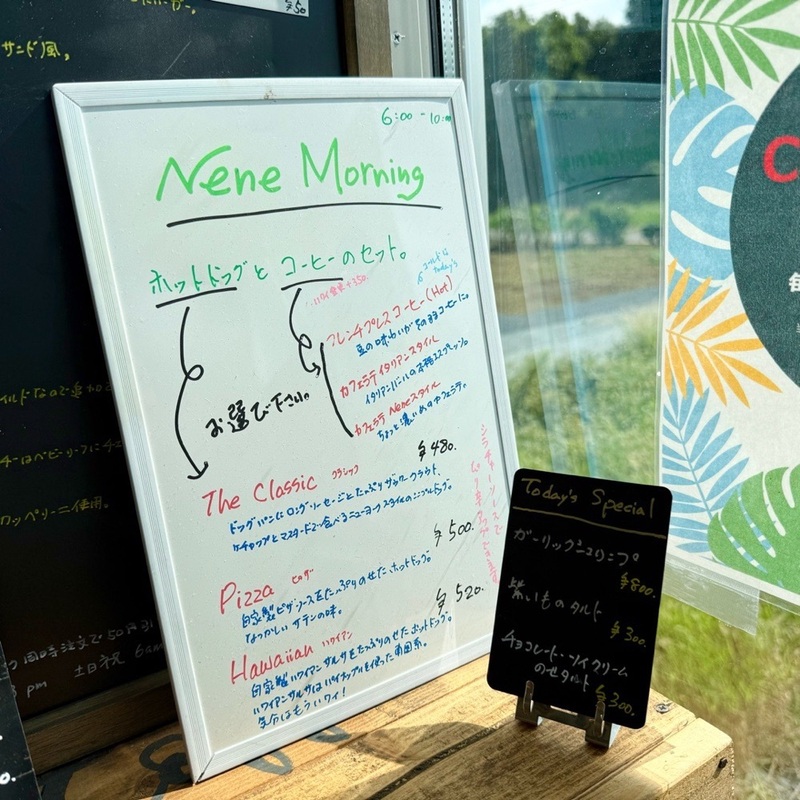 サンド風。
6:00 - 10:00
Nene Morning
ホットドッグと コーヒーのセット。
コールドは
today's
フレンチプレスコーヒー(Hot)
豆の味わいがそのままコーヒーに。
カフェラテ イタリアンスタイル
イタリアンバールの本格エスプレッソ。
カフェラテ Neneスタイル
ちょっと濃いめのカフェラテ。
お選び下さい。
¥480.
The Classic クラシック
ドッグパンにロングソーセージとたっぷりザワークラウト、
ケチャップとマスタードで食べるニューヨークスタイルのシンプルドッグ。
¥500.
Pizza ピザ
自家製ピザソースをたっぷりのせたホットドッグ。
なつかしい の味。
¥520.
Hawaiian ハワイアン
自家製ハワイアンサルサをたっぷりのせたホットドッグ。
ハワイアンサルサはパイナップルを使った南国系。
気分はもうハワイ!
Today's Special
ガーリックシュリンプ
¥800.
紫いものタルト
¥300.
チョコレート・ソイクリーム
のせタルト
¥300.
C
毎